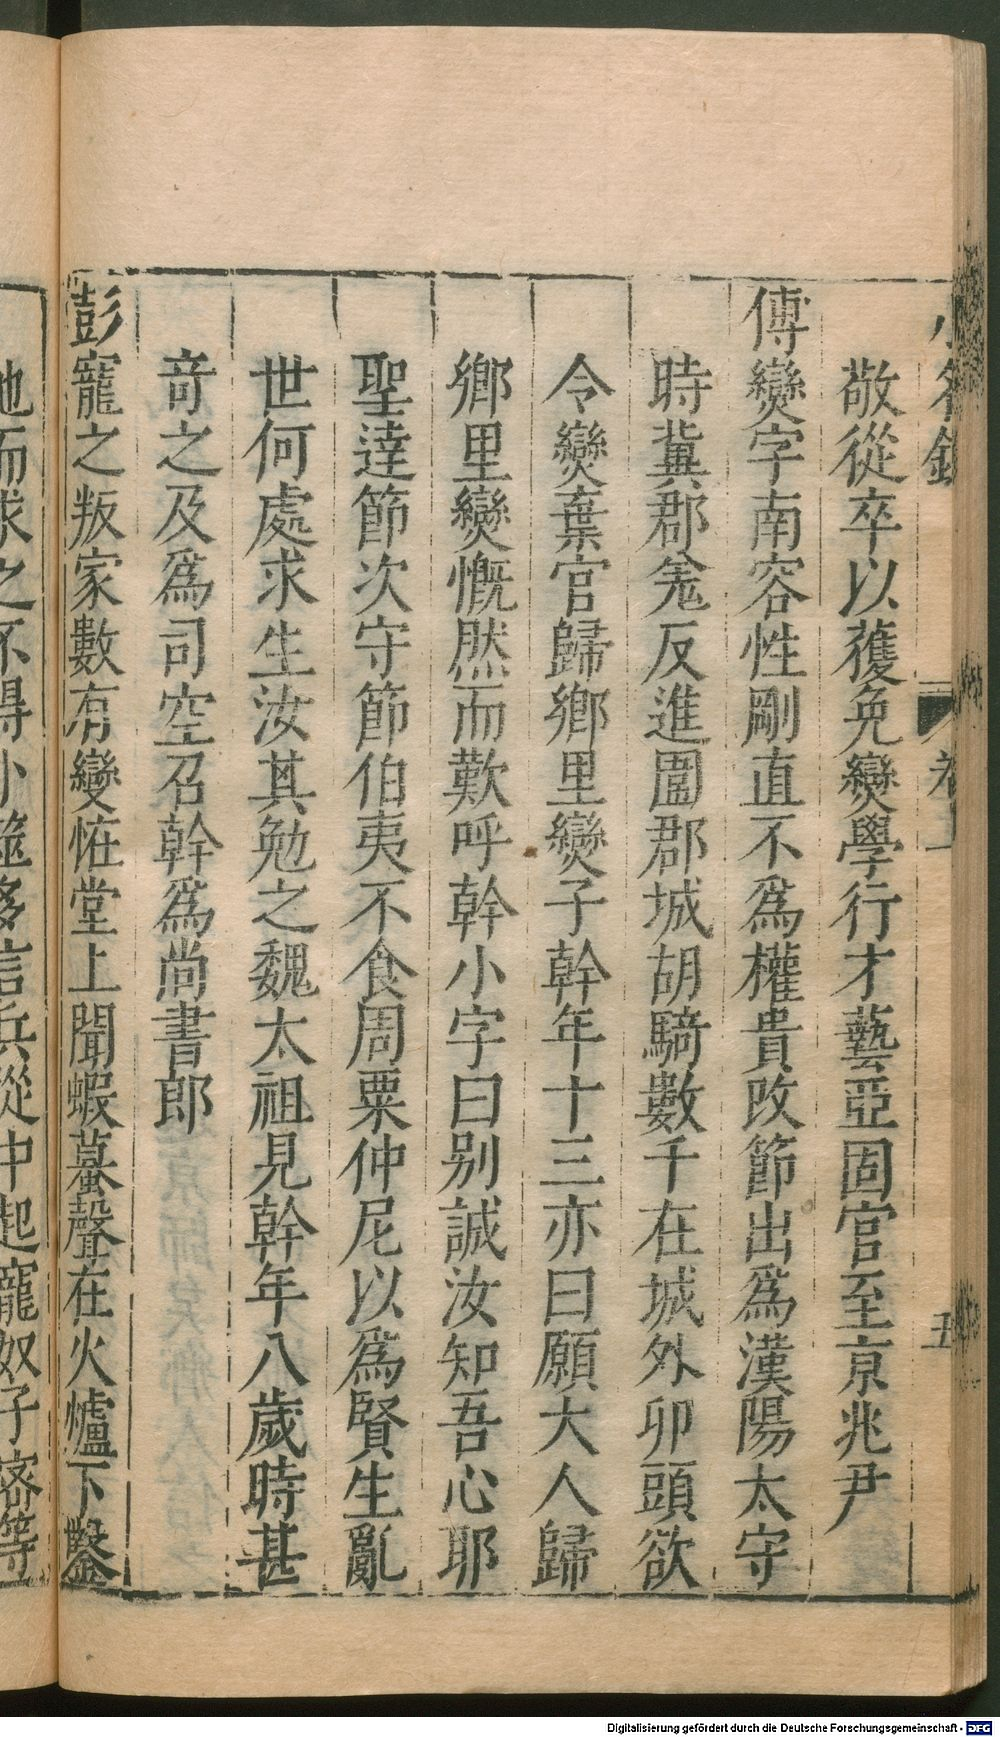 敬從卒以獲免爕學行才藝亞固官至京兆尹
傅爕字南容性剛直不爲權貴改節出爲漢陽太守
時冀郡羌反進圍郡城胡騎數千在城外卯頭欲
令爕棄官歸鄉里爕子幹年十三亦曰願大人歸
鄉里爕慨然而歎呼幹小字曰别誠汝知吾心耶
聖達節次守節伯夷不食周粟仲尼以爲賢生亂
世何處求生汝其勉之魏太祖見幹年八歲時甚
竒之及爲司空召幹爲尚書郎
彭寵之叛家數有變恠堂上聞蝦蟇聲在火爐下鑿
地而求之不得小 多言兵從中起寵奴子密等
卷一
五
Digitalisierung gefördert durch die Deutsche Forschungsgemeinschaft - DFG